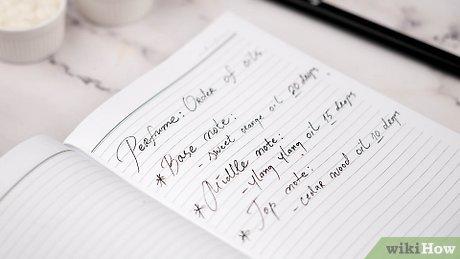 Perfume: Order of oils
* Base note:
- sweet orange oil 20 drops
* Middle note:
- Ylang Ylang oil 15 drops
* Top note:
- cedar wood oil 10 drops
wikiHow